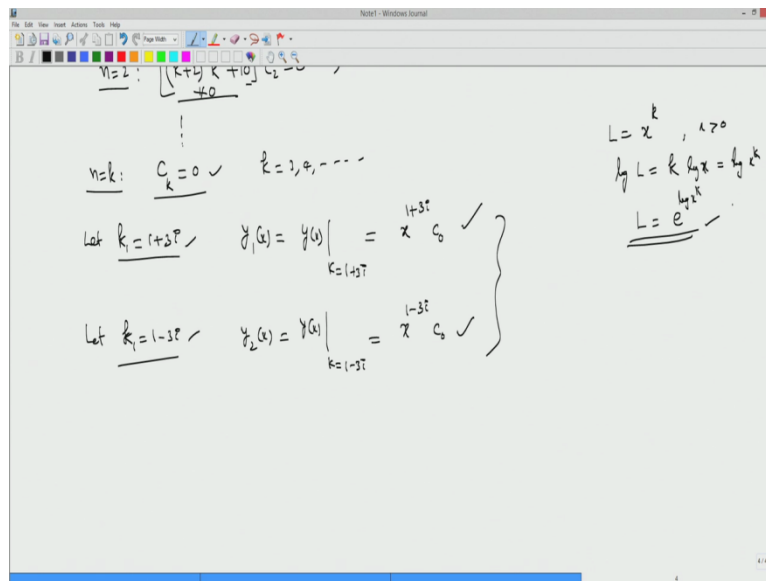 Note1 - Windows Journal
File Edit View Insert Actions Tools Help
Page Width
B I
n=2 : [(k+2) k +10] C₂ = 0
≠0
n=k: C_k = 0 ✓ k = 3, 4, ----
Let k₁ = 1+3i ✓ y₁(x) = y(x)|_{k=1+3i} = x^{1+3i} C₀ ✓
Let k₁ = 1-3i ✓ y₂(x) = y(x)|_{k=1-3i} = x^{1-3i} C₀ ✓
L = x^k , x>0
log L = k log x = log x^k
L = e^{log x^k} ✓